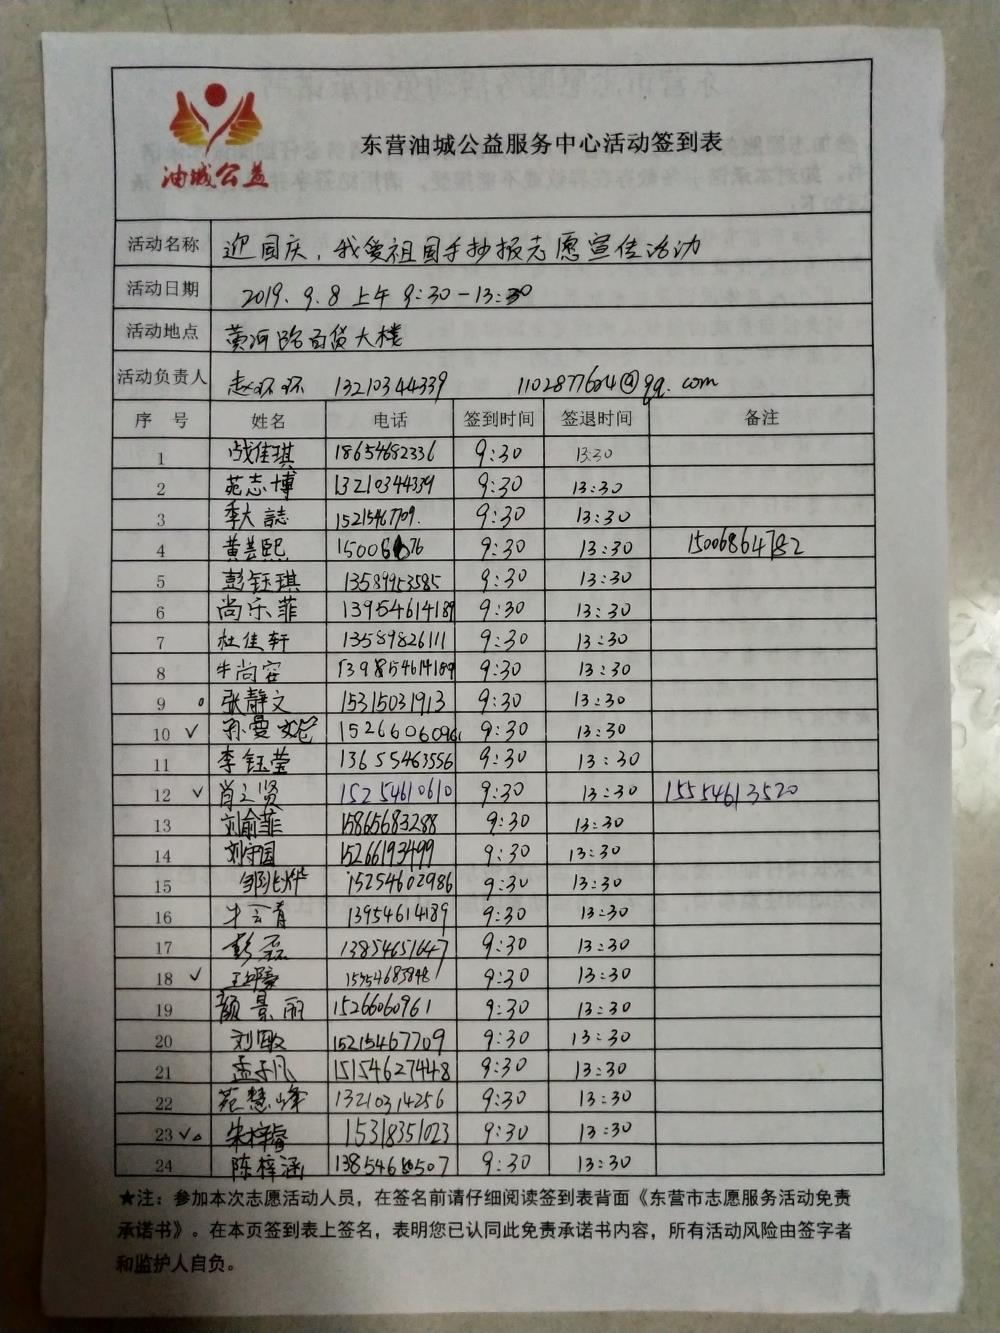 油城公益
东营油城公益服务中心活动签到表
活动名称 迎国庆,我爱祖国手抄报志愿宣传活动
活动日期 2019.9.8 上午 9:30-13:30
活动地点 黄河路百货大楼
活动负责人 赵环环 13210344339 1102877604@qq.com
序号 姓名 电话 签到时间 签退时间 备注
1 战佳琪 18654682336 9:30 13:30
2 苑志博 13210344339 9:30 13:30
3 李大誌 15215467709. 9:30 13:30
4 黄芸熙 15006 76 9:30 13:30 15006864782
5 彭钰琪 13589953585 9:30 13:30
6 尚乐菲 13954614189 9:30 13:30
7 杜佳轩 13589826111 9:30 13:30
8 牛尚容 13954614189 9:30 13:30
9 张静文 15315031913 9:30 13:30
10 ✓ 孙曼妮 15266060961 9:30 13:30
11 李钰莹 13655463556 9:30 13:30
12 ✓ 肖之贤 15254610610 9:30 13:30 15554613520
13 刘俞菲 15865683288 9:30 13:30
14 刘守国 15266193499 9:30 13:30
15 邹兆烨 15254602986 9:30 13:30
16 牛会青 13954614189 9:30 13:30
17 彭磊 13854651647 9:30 13:30
18 ✓ 9:30 13:30
19 颜景丽 15266060961 9:30 13:30
20 刘敏 15215467709 9:30 13:30
21 孟子凡 15154627448 9:30 13:30
22 苑慧峰 13210314256 9:30 13:30
23 ✓ 朱梓睿 15318351023 9:30 13:30
24 陈梓涵 9:30 13:30
★注:参加本次志愿活动人员,在签名前请仔细阅读签到表背面《东营市志愿服务活动免责
承诺书》。在本页签到表上签名,表明您已认同此免责承诺书内容,所有活动风险由签字者
和监护人自负。